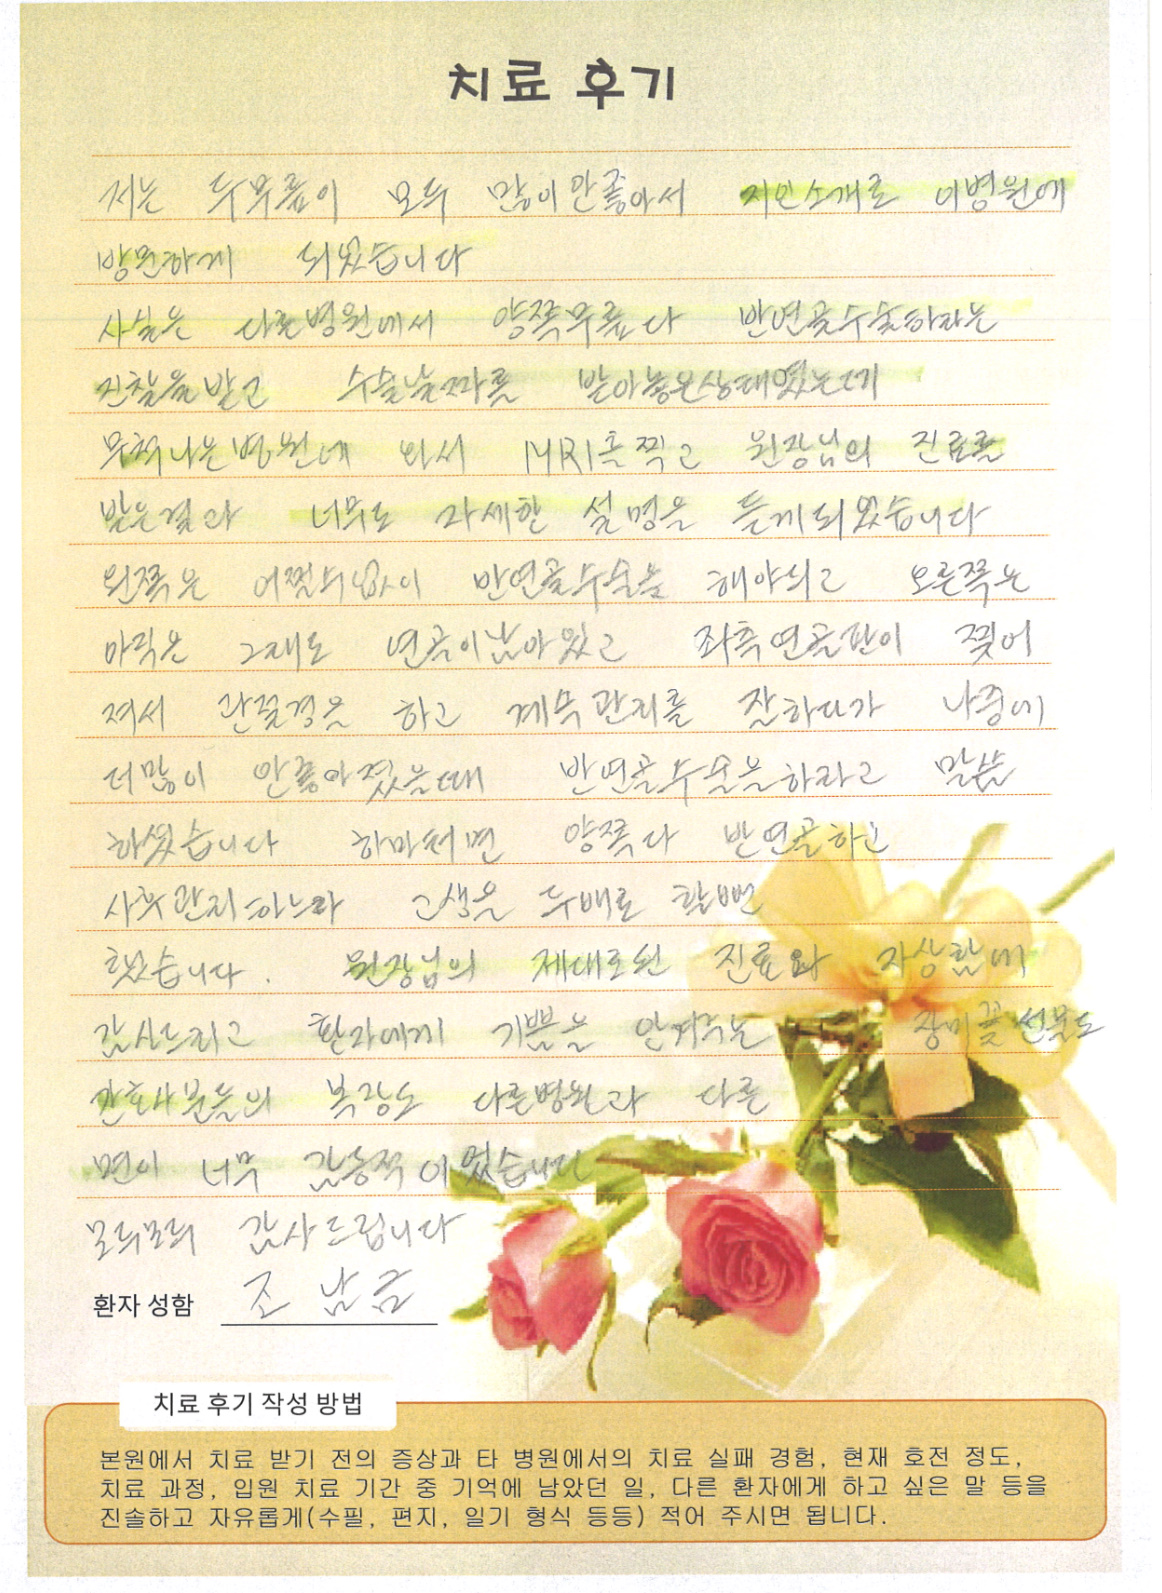 치료 후기
저는 두무릎이 모두 많이안좋아서 지인소개로 이병원에
방문하게 되었습니다
사실은 다른병원에서 양쪽무릎다 반연골수술하라는
진찰을받고 수술날짜를 받아놓은상태였는데
무척나은병원에 와서 MRI촬찍고 원장님의 진료를
받은결과 너무도 자세한 설명을 듣게되었습니다
왼쪽은 어쩔수없이 반연골수술을 해야되고 오른쪽은
아직은 그래도 연골이남아있고 좌측연골판이 찢어
져서 관절경을 하고 계속관리를 잘하다가 나중에
더많이 안좋아졌을때 반연골수술을하라고 말씀
하셨습니다 하마터면 양쪽다 반연골하고
사후관리하느라 고생을 두배로 할뻔
했습니다. 원장님의 제대로된 진료와 자상함에
감사드리고 환자에게 기쁨을 안겨주는 장미꽃선물도
간호사분들의 복장도 다른병원과 다른
면이 너무 감동적이었습니다
모두모두 감사드립니다
환자 성함 조남금
치료 후기 작성 방법
본원에서 치료 받기 전의 증상과 타 병원에서의 치료 실패 경험, 현재 호전 정도,
치료 과정, 입원 치료 기간 중 기억에 남았던 일, 다른 환자에게 하고 싶은 말 등을
진솔하고 자유롭게(수필, 편지, 일기 형식 등등) 적어 주시면 됩니다.